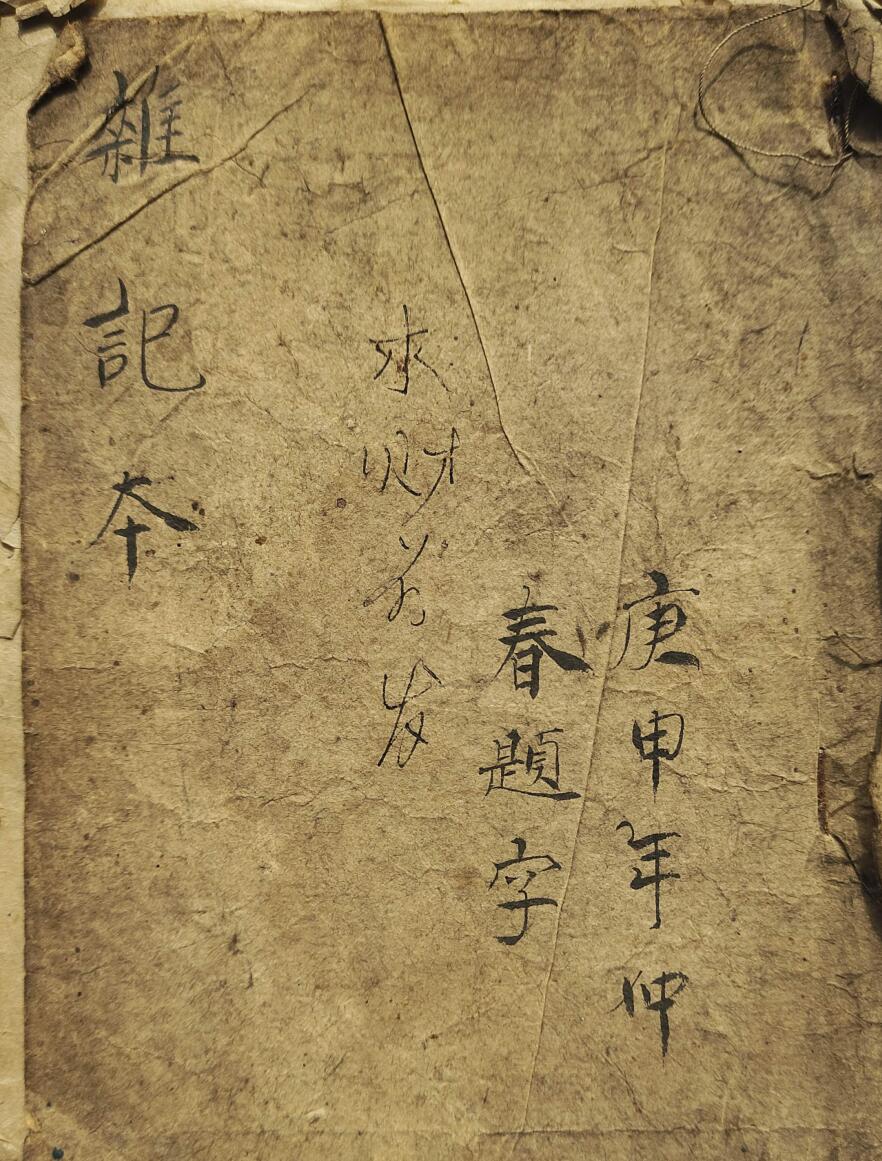 庚申年仲
春題字
求财
发
雜記本